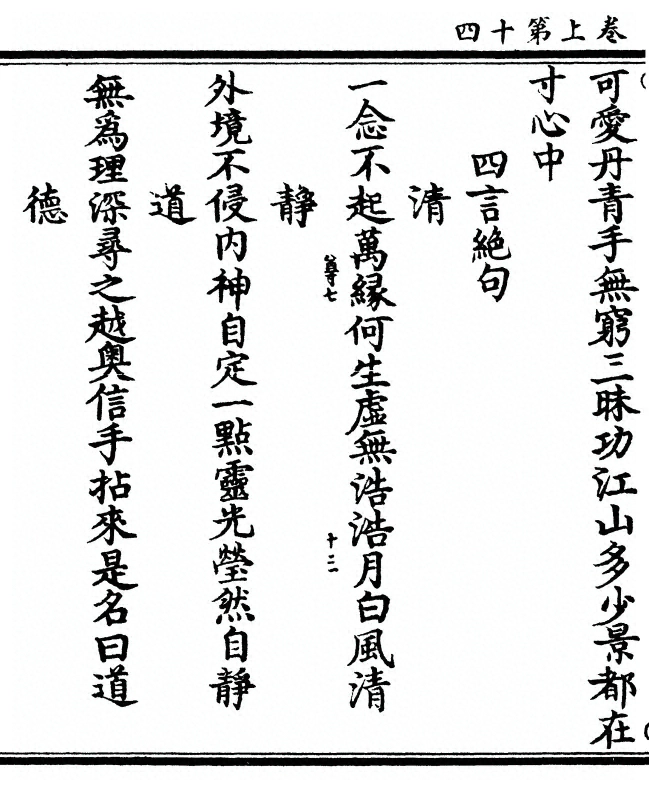 卷上第十四
可愛丹青手無窮三昧功江山多少景都在
寸心中
四言絶句
清
一念不起萬緣何生虛無浩浩月白風清
尊七
十二
靜
外境不侵内神自定一點靈光瑩然自靜
道
無爲理深尋之越奥信手拈來是名曰道
德